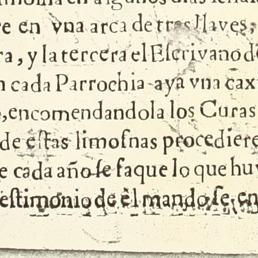 en vna arca de tres llaves,
ra, y la tercera el Escrivano d
n cada Parrochia aya vna cax
o, encomendandola los Curas
de estas limosnas procediere
e cada año se saque lo que huv
estimonio de èl mando se en